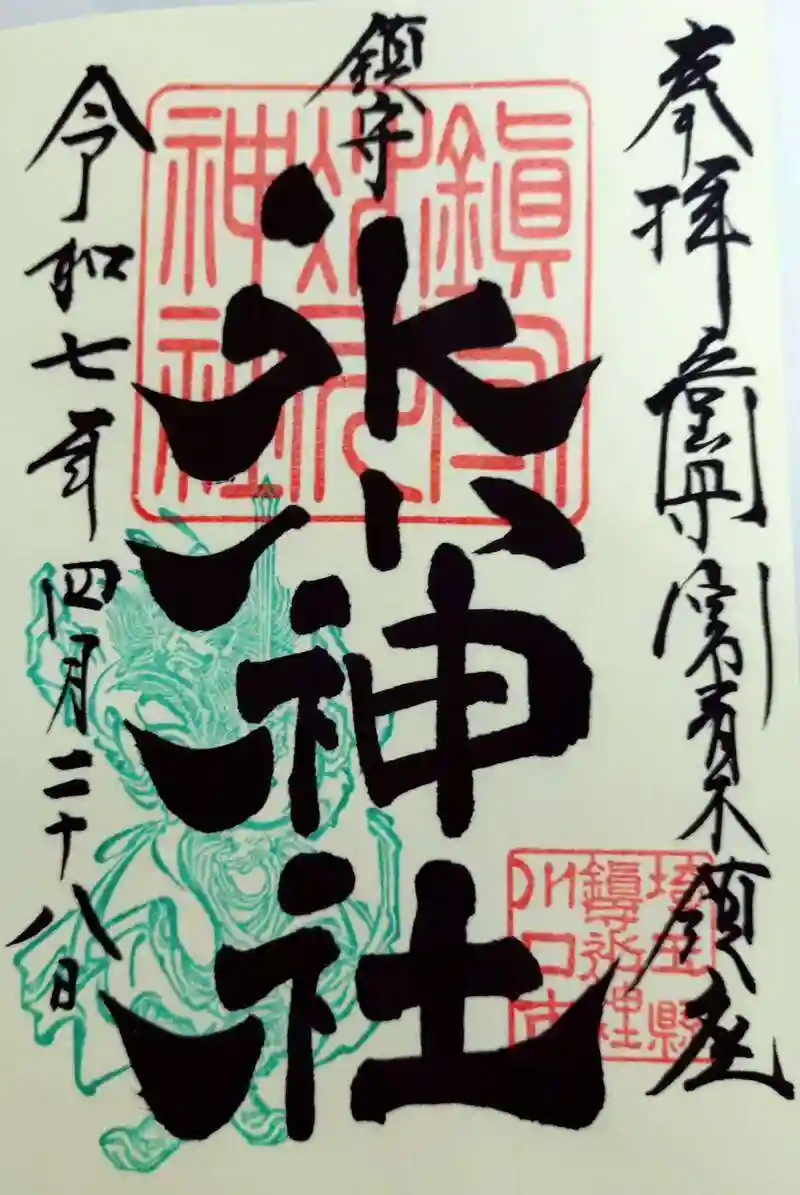 奉拝
青木鎮座
鎮守
氷川神社
令和七年四月二十八日
鎮守
氷川
神社
埼玉縣
鎮守氷川神社
川口市